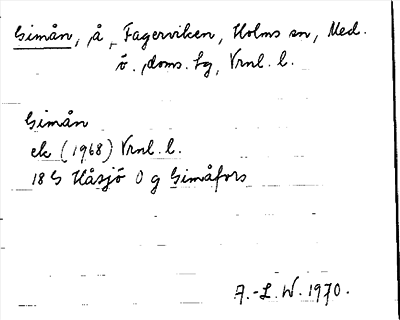 Gimån, å, Fagerviken, Holms sn, Med.
ö. doms. hg, Vrnl. l.
Gimån
ek (1968) Vrnl. l.
18 G Håsjö O g Gimåfors
A.-L. W. 1970.